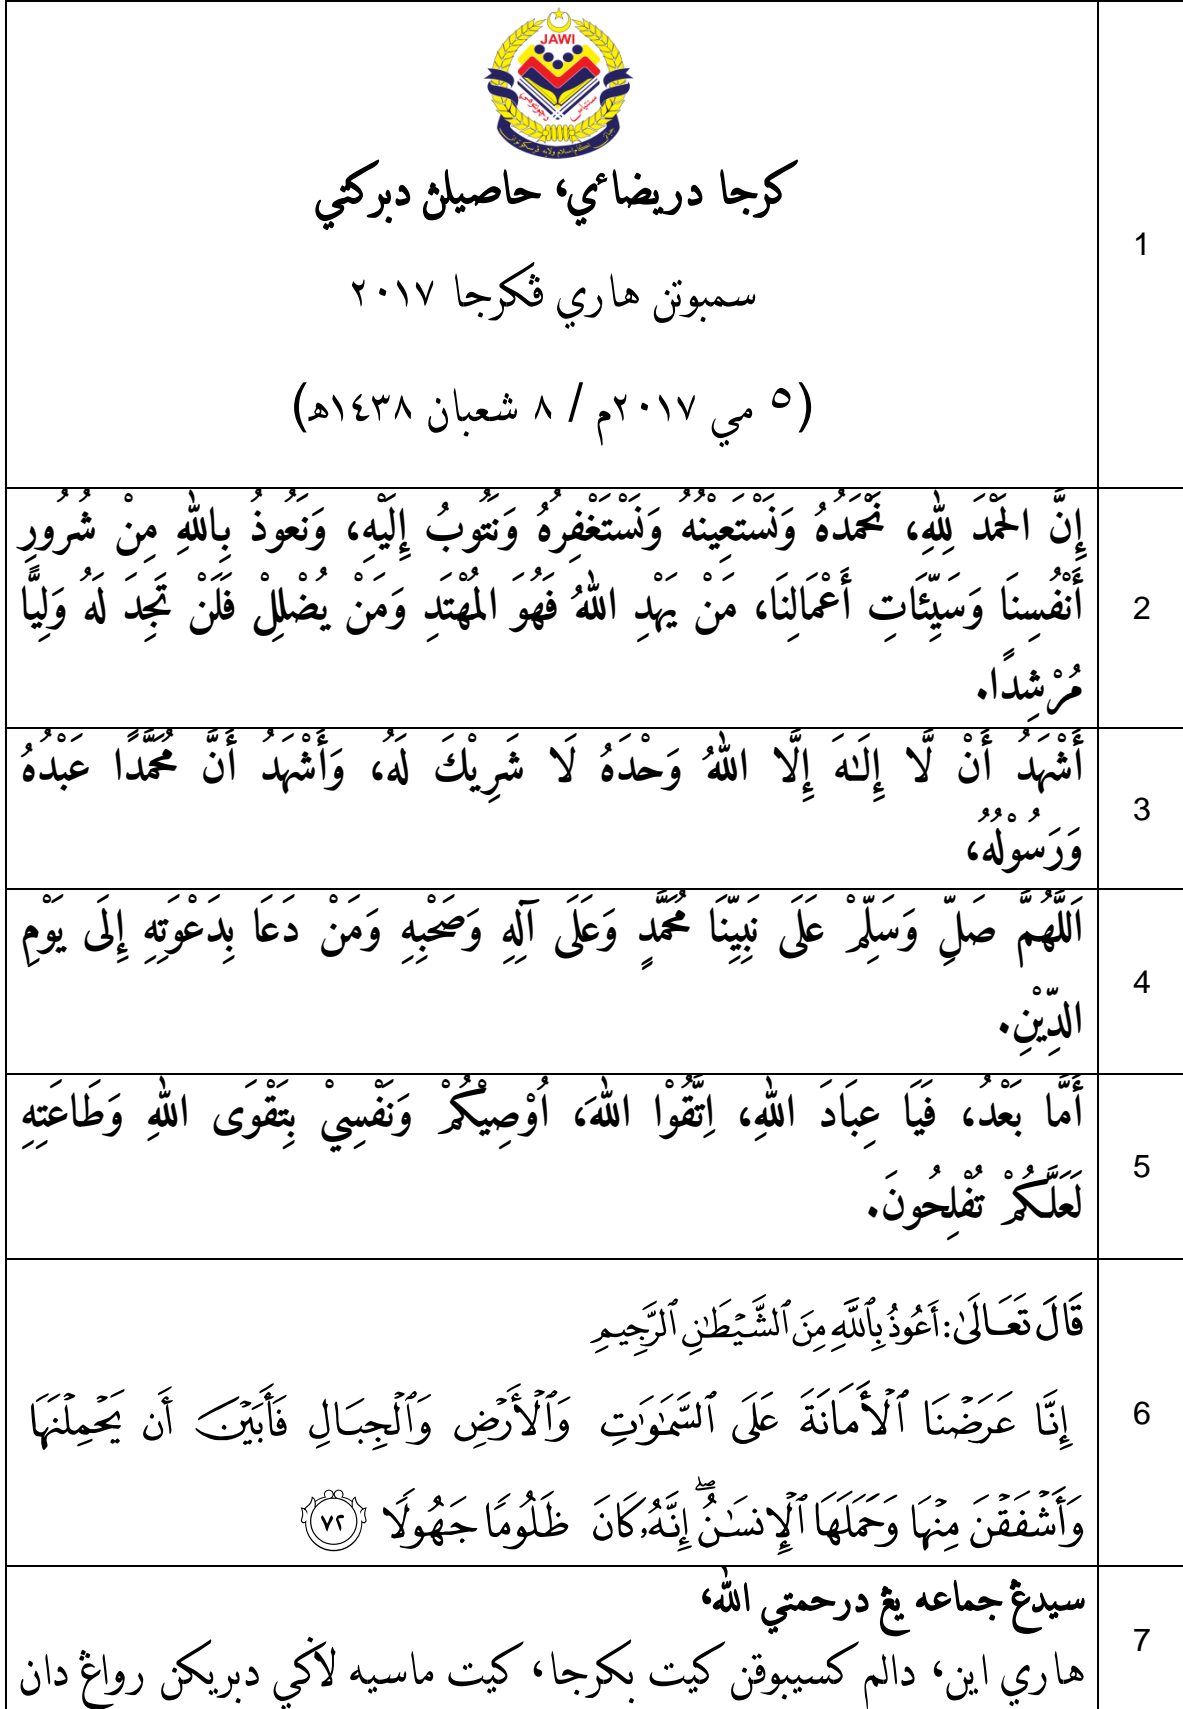 JAWI
كرجا دريضاءي، حاصيلڽ دبركتي
سمبوتن هاري ڤكرجا ٢٠١٧
(٥ مي ٢٠١٧م / ٨ شعبان ١٤٣٨هـ)
1
إِنَّ الْحَمْدَ لِلّٰهِ، نَحْمَدُهُ وَنَسْتَعِيْنُهُ وَنَسْتَغْفِرُهُ وَنَتُوبُ إِلَيْهِ، وَنَعُوذُ بِاللّٰهِ مِنْ شُرُورِ
أَنْفُسِنَا وَسَيِّئَاتِ أَعْمَالِنَا، مَنْ يَهْدِ اللّٰهُ فَهُوَ الْمُهْتَدِ وَمَنْ يُضْلِلْ فَلَنْ تَجِدَ لَهُ وَلِيًّا
مُرْشِدًا.
2
أَشْهَدُ أَنْ لَّا إِلَـٰهَ إِلَّا اللّٰهُ وَحْدَهُ لَا شَرِيْكَ لَهُ، وَأَشْهَدُ أَنَّ مُحَمَّدًا عَبْدُهُ
وَرَسُوْلُهُ،
3
اَللّٰهُمَّ صَلِّ وَسَلِّمْ عَلَى نَبِيِّنَا مُحَمَّدٍ وَعَلَى آلِهِ وَصَحْبِهِ وَمَنْ دَعَا بِدَعْوَتِهِ إِلَى يَوْمِ
الدِّيْنِ.
4
أَمَّا بَعْدُ، فَيَا عِبَادَ اللّٰهِ، اِتَّقُوْا اللّٰهَ، أُوْصِيْكُمْ وَنَفْسِيْ بِتَقْوَى اللّٰهِ وَطَاعَتِهِ
لَعَلَّكُمْ تُفْلِحُونَ.
5
قَالَ تَعَالَىٰ: أَعُوذُ بِٱللَّهِ مِنَ ٱلشَّيْطَٰنِ ٱلرَّجِيمِ
إِنَّا عَرَضْنَا ٱلْأَمَانَةَ عَلَى ٱلسَّمَٰوَٰتِ وَٱلْأَرْضِ وَٱلْجِبَالِ فَأَبَيْنَ أَن يَحْمِلْنَهَا
وَأَشْفَقْنَ مِنْهَا وَحَمَلَهَا ٱلْإِنسَٰنُ ۖ إِنَّهُۥ كَانَ ظَلُومًا جَهُولًا ٧٢
6
سيدڠ جماعه يڠ درحمتي الله،
هاري اين، دالم كسيبوقن كيت بكرجا، كيت ماسيه لاڬي دبريكن رواڠ دان
7